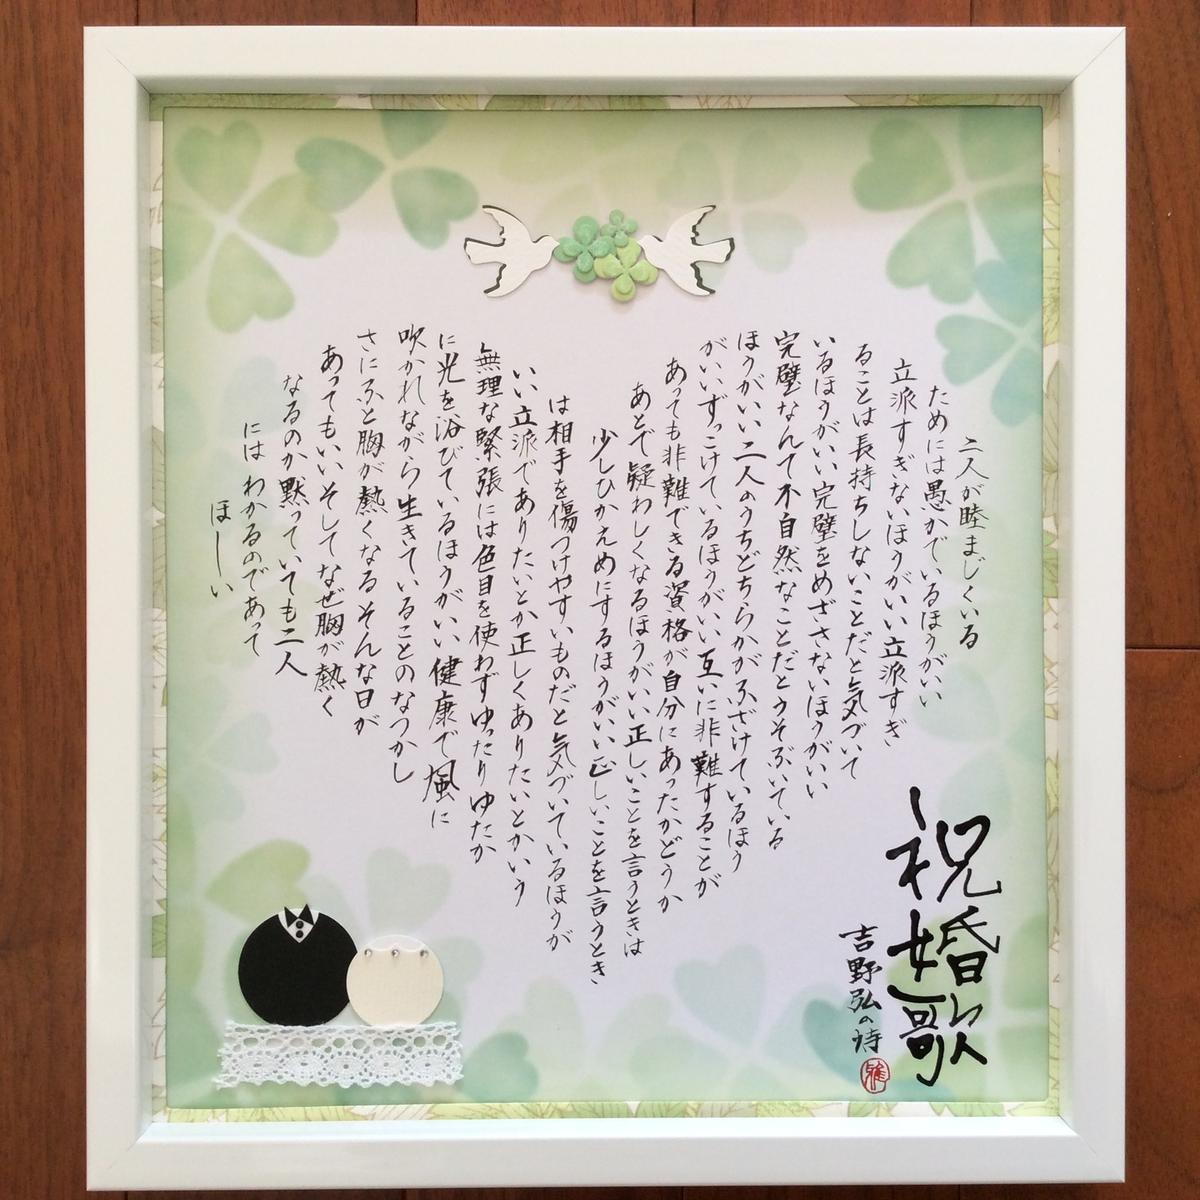 祝婚歌
吉野弘の詩
二人が睦まじくいる
ためには愚かでいるほうがいい
立派すぎないほうがいい立派すぎ
ることは長持ちしないことだと気づいて
いるほうがいい完璧をめざさないほうがいい
完璧なんて不自然なことだとうそぶいている
ほうがいい二人のうちどちらかがふざけているほう
がいいずっこけているほうがいい互いに非難することが
あっても非難できる資格が自分にあったかどうか
あとで疑わしくなるほうがいい正しいことを言うときは
少しひかえめにするほうがいい正しいことを言うとき
は相手を傷つけやすいものだと気づいているほうが
いい立派でありたいとか正しくありたいとかいう
無理な緊張には色目を使わずゆったりゆたか
に光を浴びているほうがいい健康で風に
吹かれながら生きていることのなつかし
さにふと胸が熱くなるそんな日が
あってもいいそしてなぜ胸が熱く
なるのか黙っていても二人
にはわかるのであって
ほしい